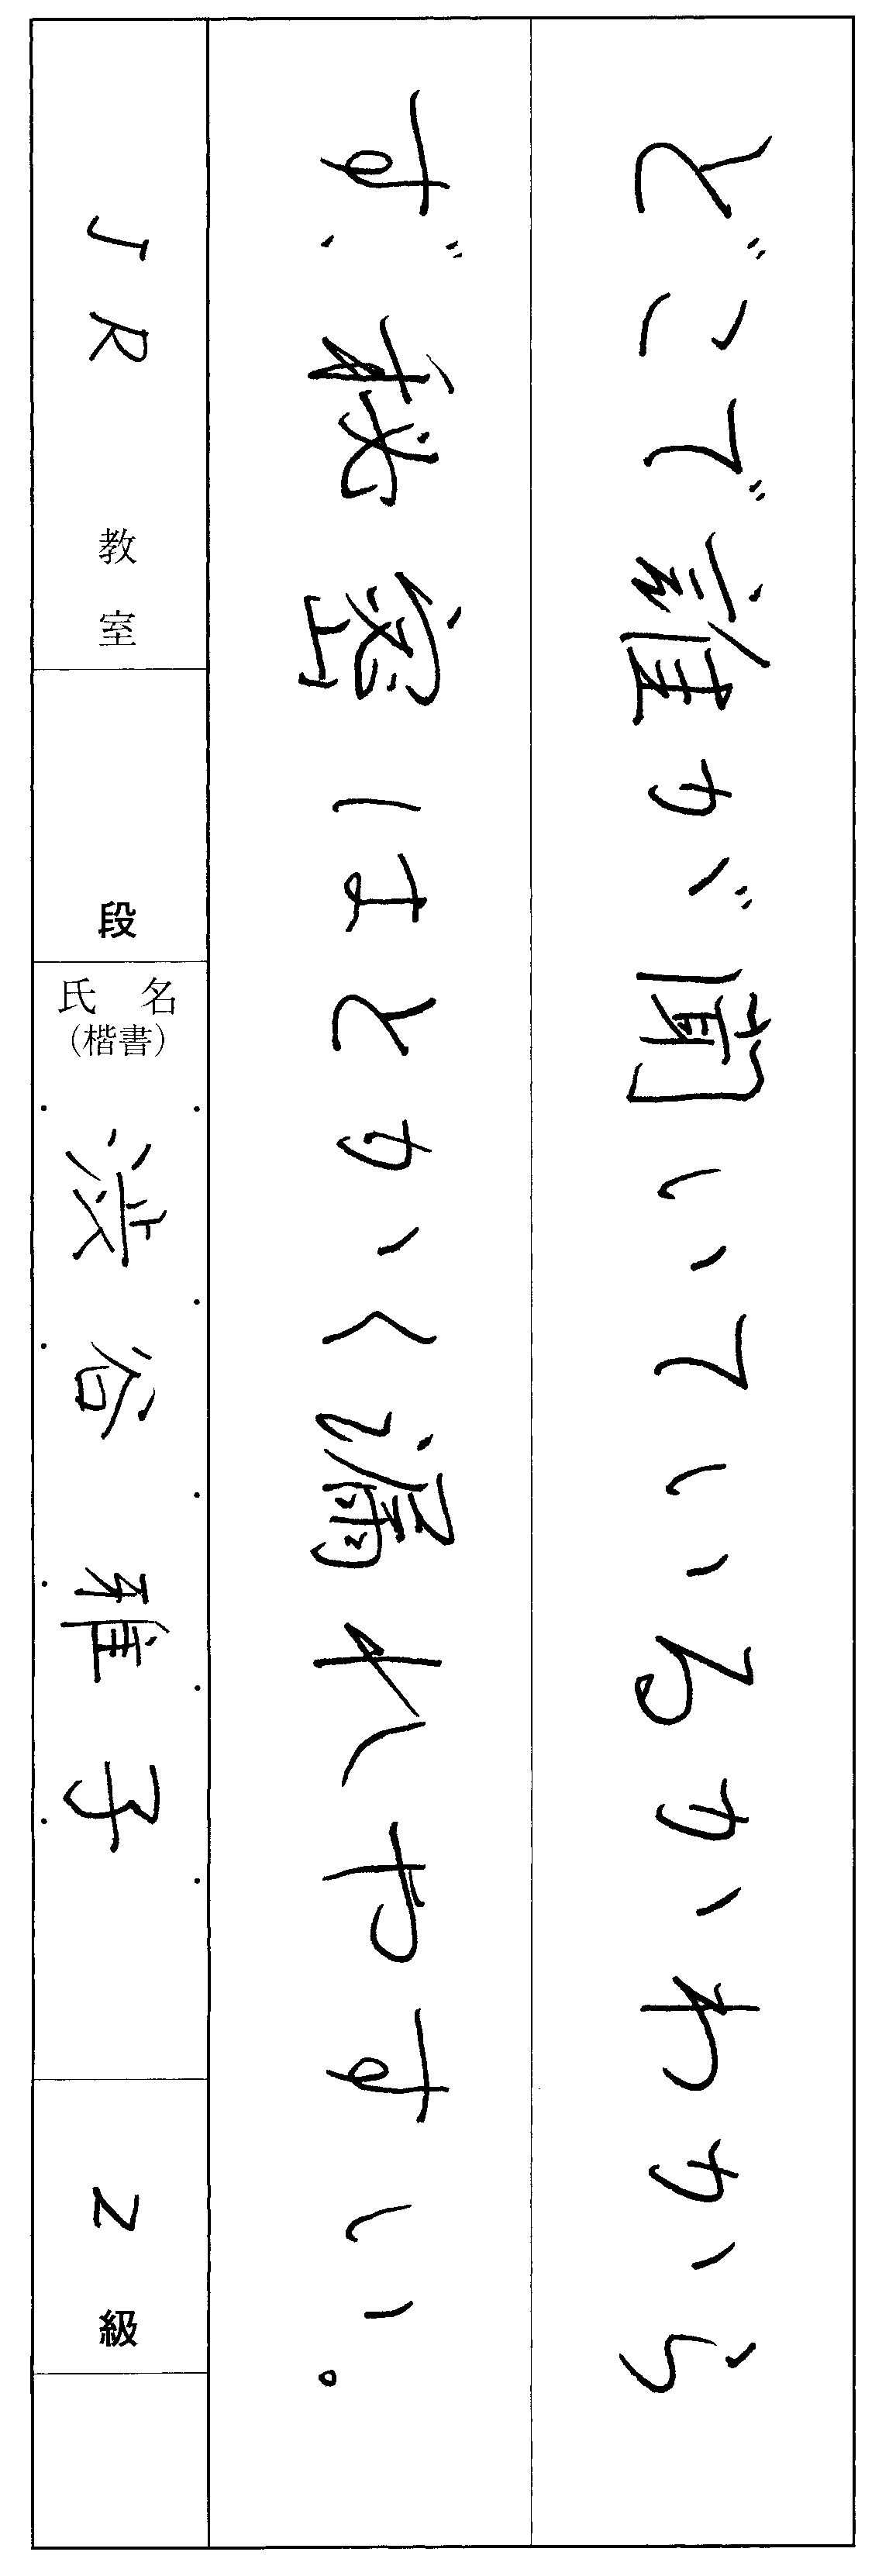 どこで誰が聞いているかわから
ず、秘密はとかく漏れやすい。
JR 教室
段
氏名
(楷書)
渋谷雅子
2 級